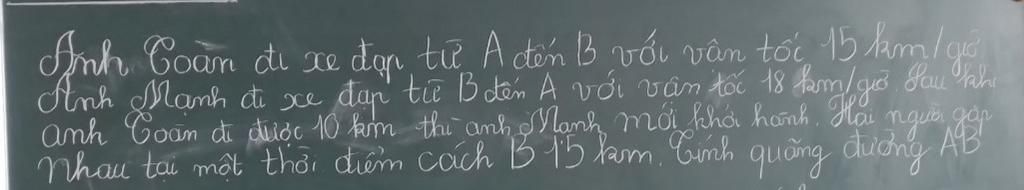 Anh Toàn đi xe đạp từ A đến B với vân tốc 15 km/giờ
Anh Mạnh đi xe đạp từ B đến A với vân tốc 18 km/giờ. Sau khi
anh Toàn đi được 10 km thì anh Mạnh mới khởi hành. Hai người gặp
nhau tại một thời điểm cách B 15 km. Tính quãng đường AB